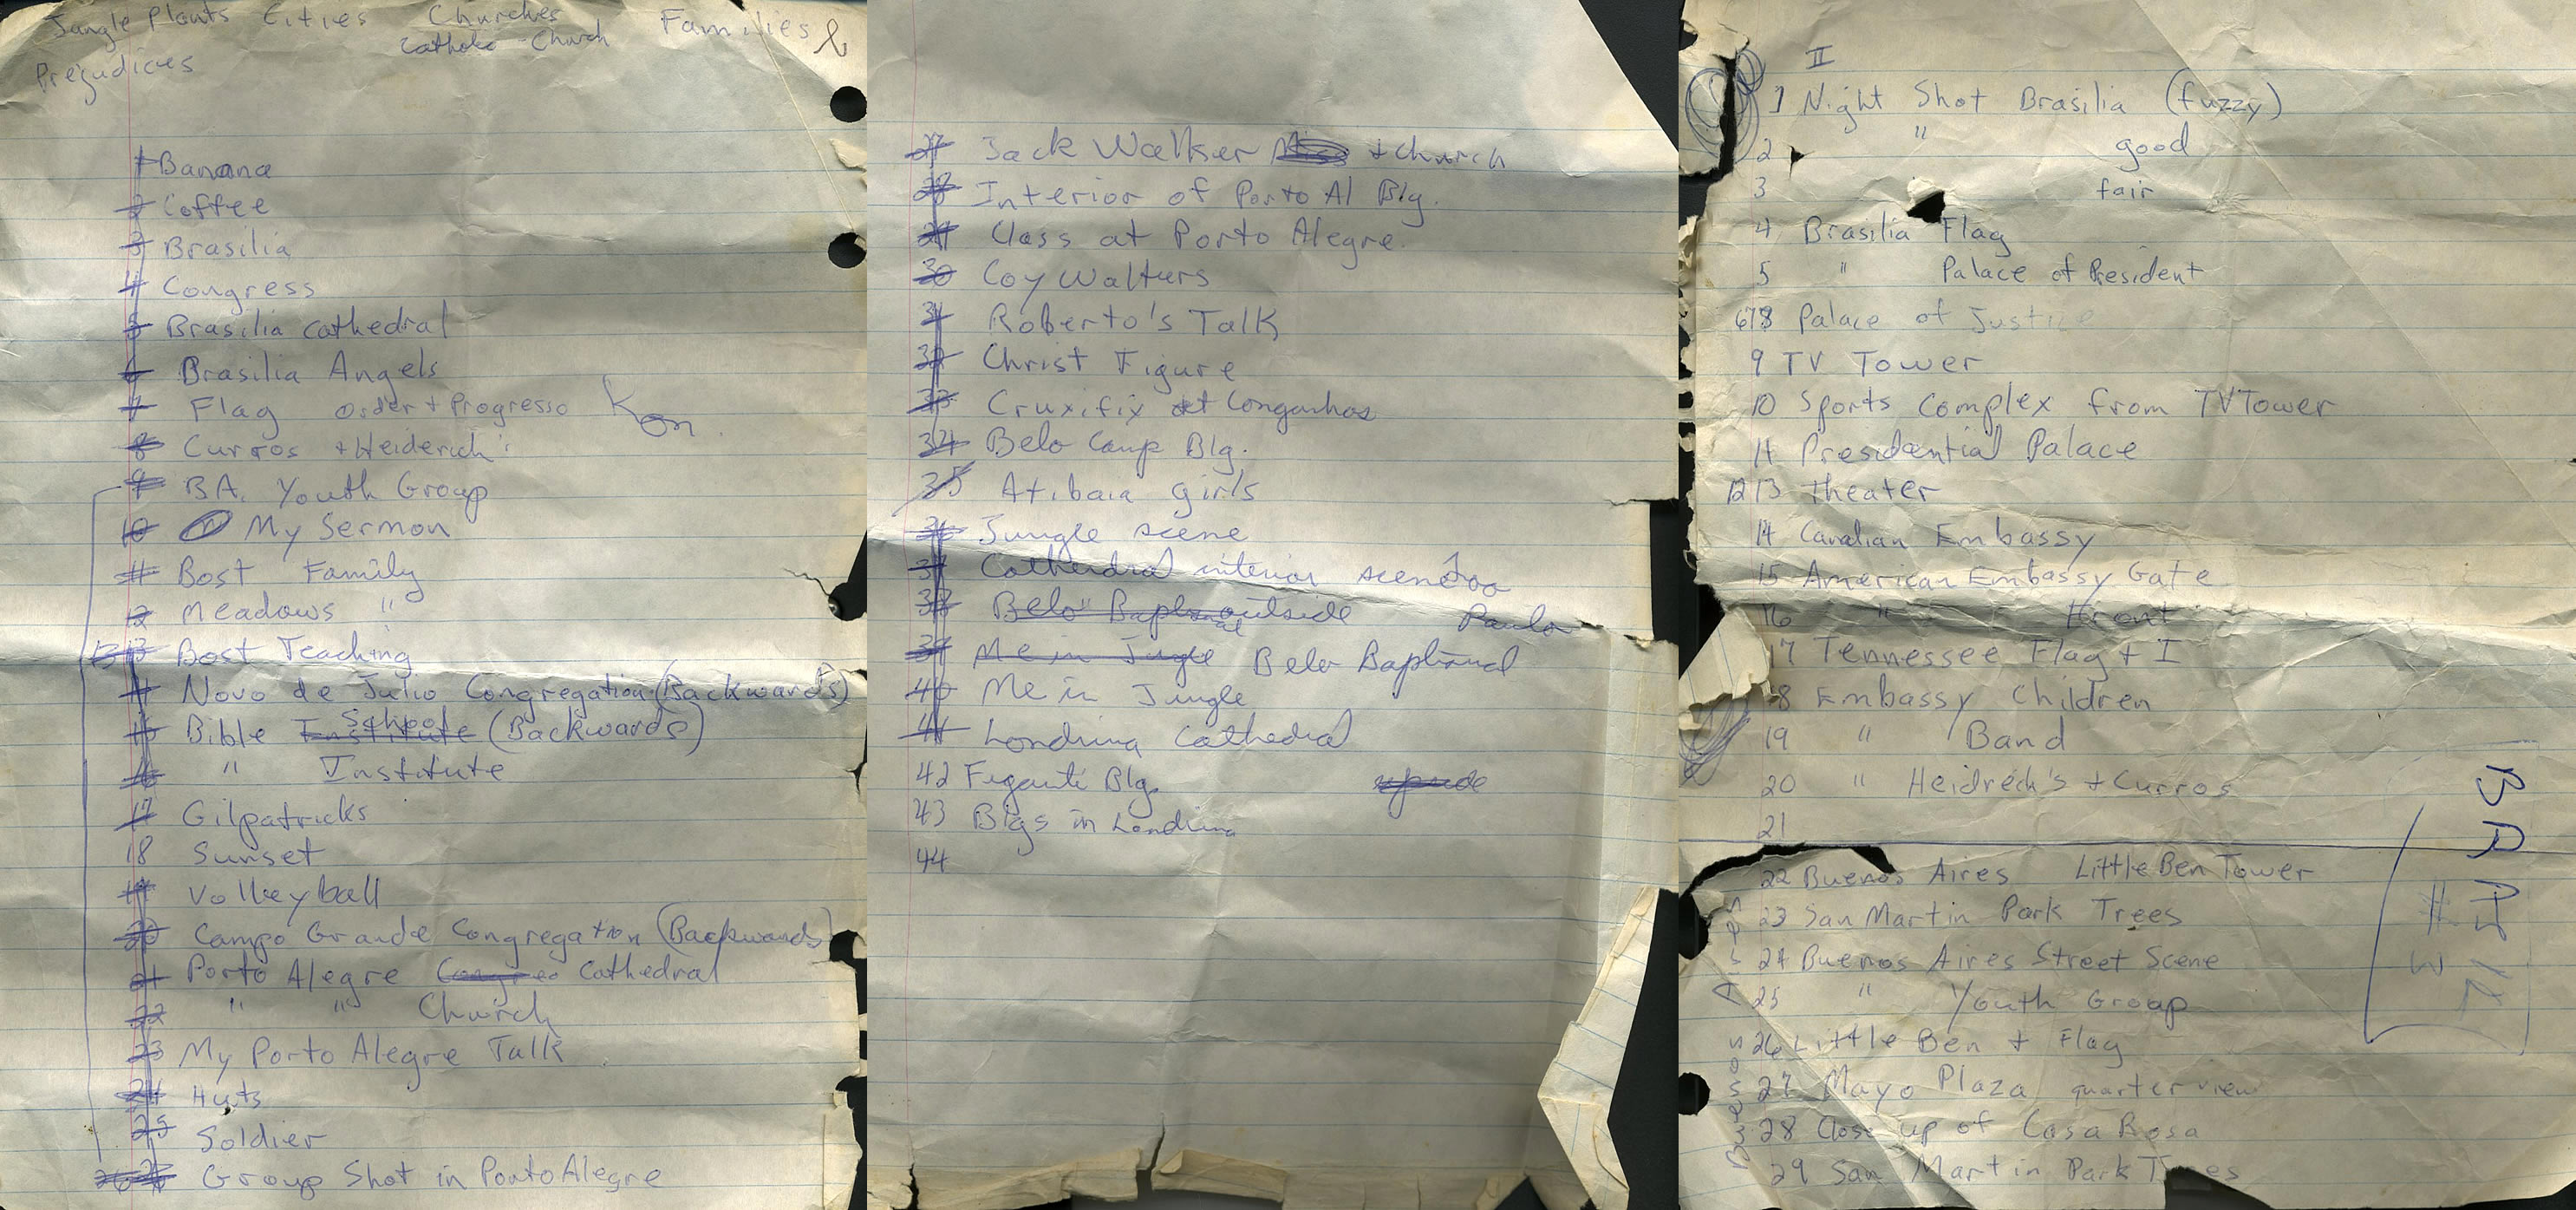 Jungle Plants Cities Churches Families &
Catholic Church
Prejudices
1 Banana
2 Coffee
3 Brasilia
4 Congress
5 Brasilia Cathedral
6 Brasilia Angels
7 Flag Order + Progresso
8 Curros + Heiderich's
9 B.A. Youth Group
10 My Sermon
11 Bost Family
12 Meadows "
13 Bost Teaching
14 Novo de Julio Congregation (Backwards)
15 Bible Institute School (Backwards)
16 " Institute
17 Gilpatricks
18 Sunset
19 Volleyball
20 Campo Grande Congregation (Backwards)
21 Porto Alegre Cathedral
22 " " Church
23 My Porto Alegre Talk
24 Huts
25 Soldier
26 Group Shot in Porto Alegre
27 Jack Walker + Church
28 Interior of Porto Al Blg.
29 Class at Porto Alegre.
30 Coy Walters
31 Roberto's Talk
32 Christ Figure
33 Cruxifix at Congonhas
34 Belo Camp Blg.
35 Atibaia girls
36 Jungle scene
37 Cathedral interior scene Sao
38 Belo outside Paulo
39 Me in Jugle Belo Baptismal
40 Me in Jungle
41 Londrina Cathedral
42 Feganti Blg.
43 Blgs in Londrina
44
II
1 Night Shot Brasilia (fuzzy)
2 " good
3 fair
4 Brasilia Flag
5 " Palace of President
678 Palace of Justice
9 TV Tower
10 Sports Complex from TV Tower
11 Presidential Palace
12 13 Theater
14 Canadian Embassy
15 American Embassy Gate
16 " Front
17 Tennessee Flag + I
18 Embassy Children
19 " Band
20 " Heidrech's + Curros
21
22 Buenos Aires Little Ben Tower
23 San Martin Park Trees
24 Buenos Aires Street Scene
25 " Youth Group
26 Little Ben + Flag
27 Mayo Plaza quarter view
28 Close up of Casa Rosa
29 San Martin Park Trees
Buenos Aires
BRAZIL
# 3